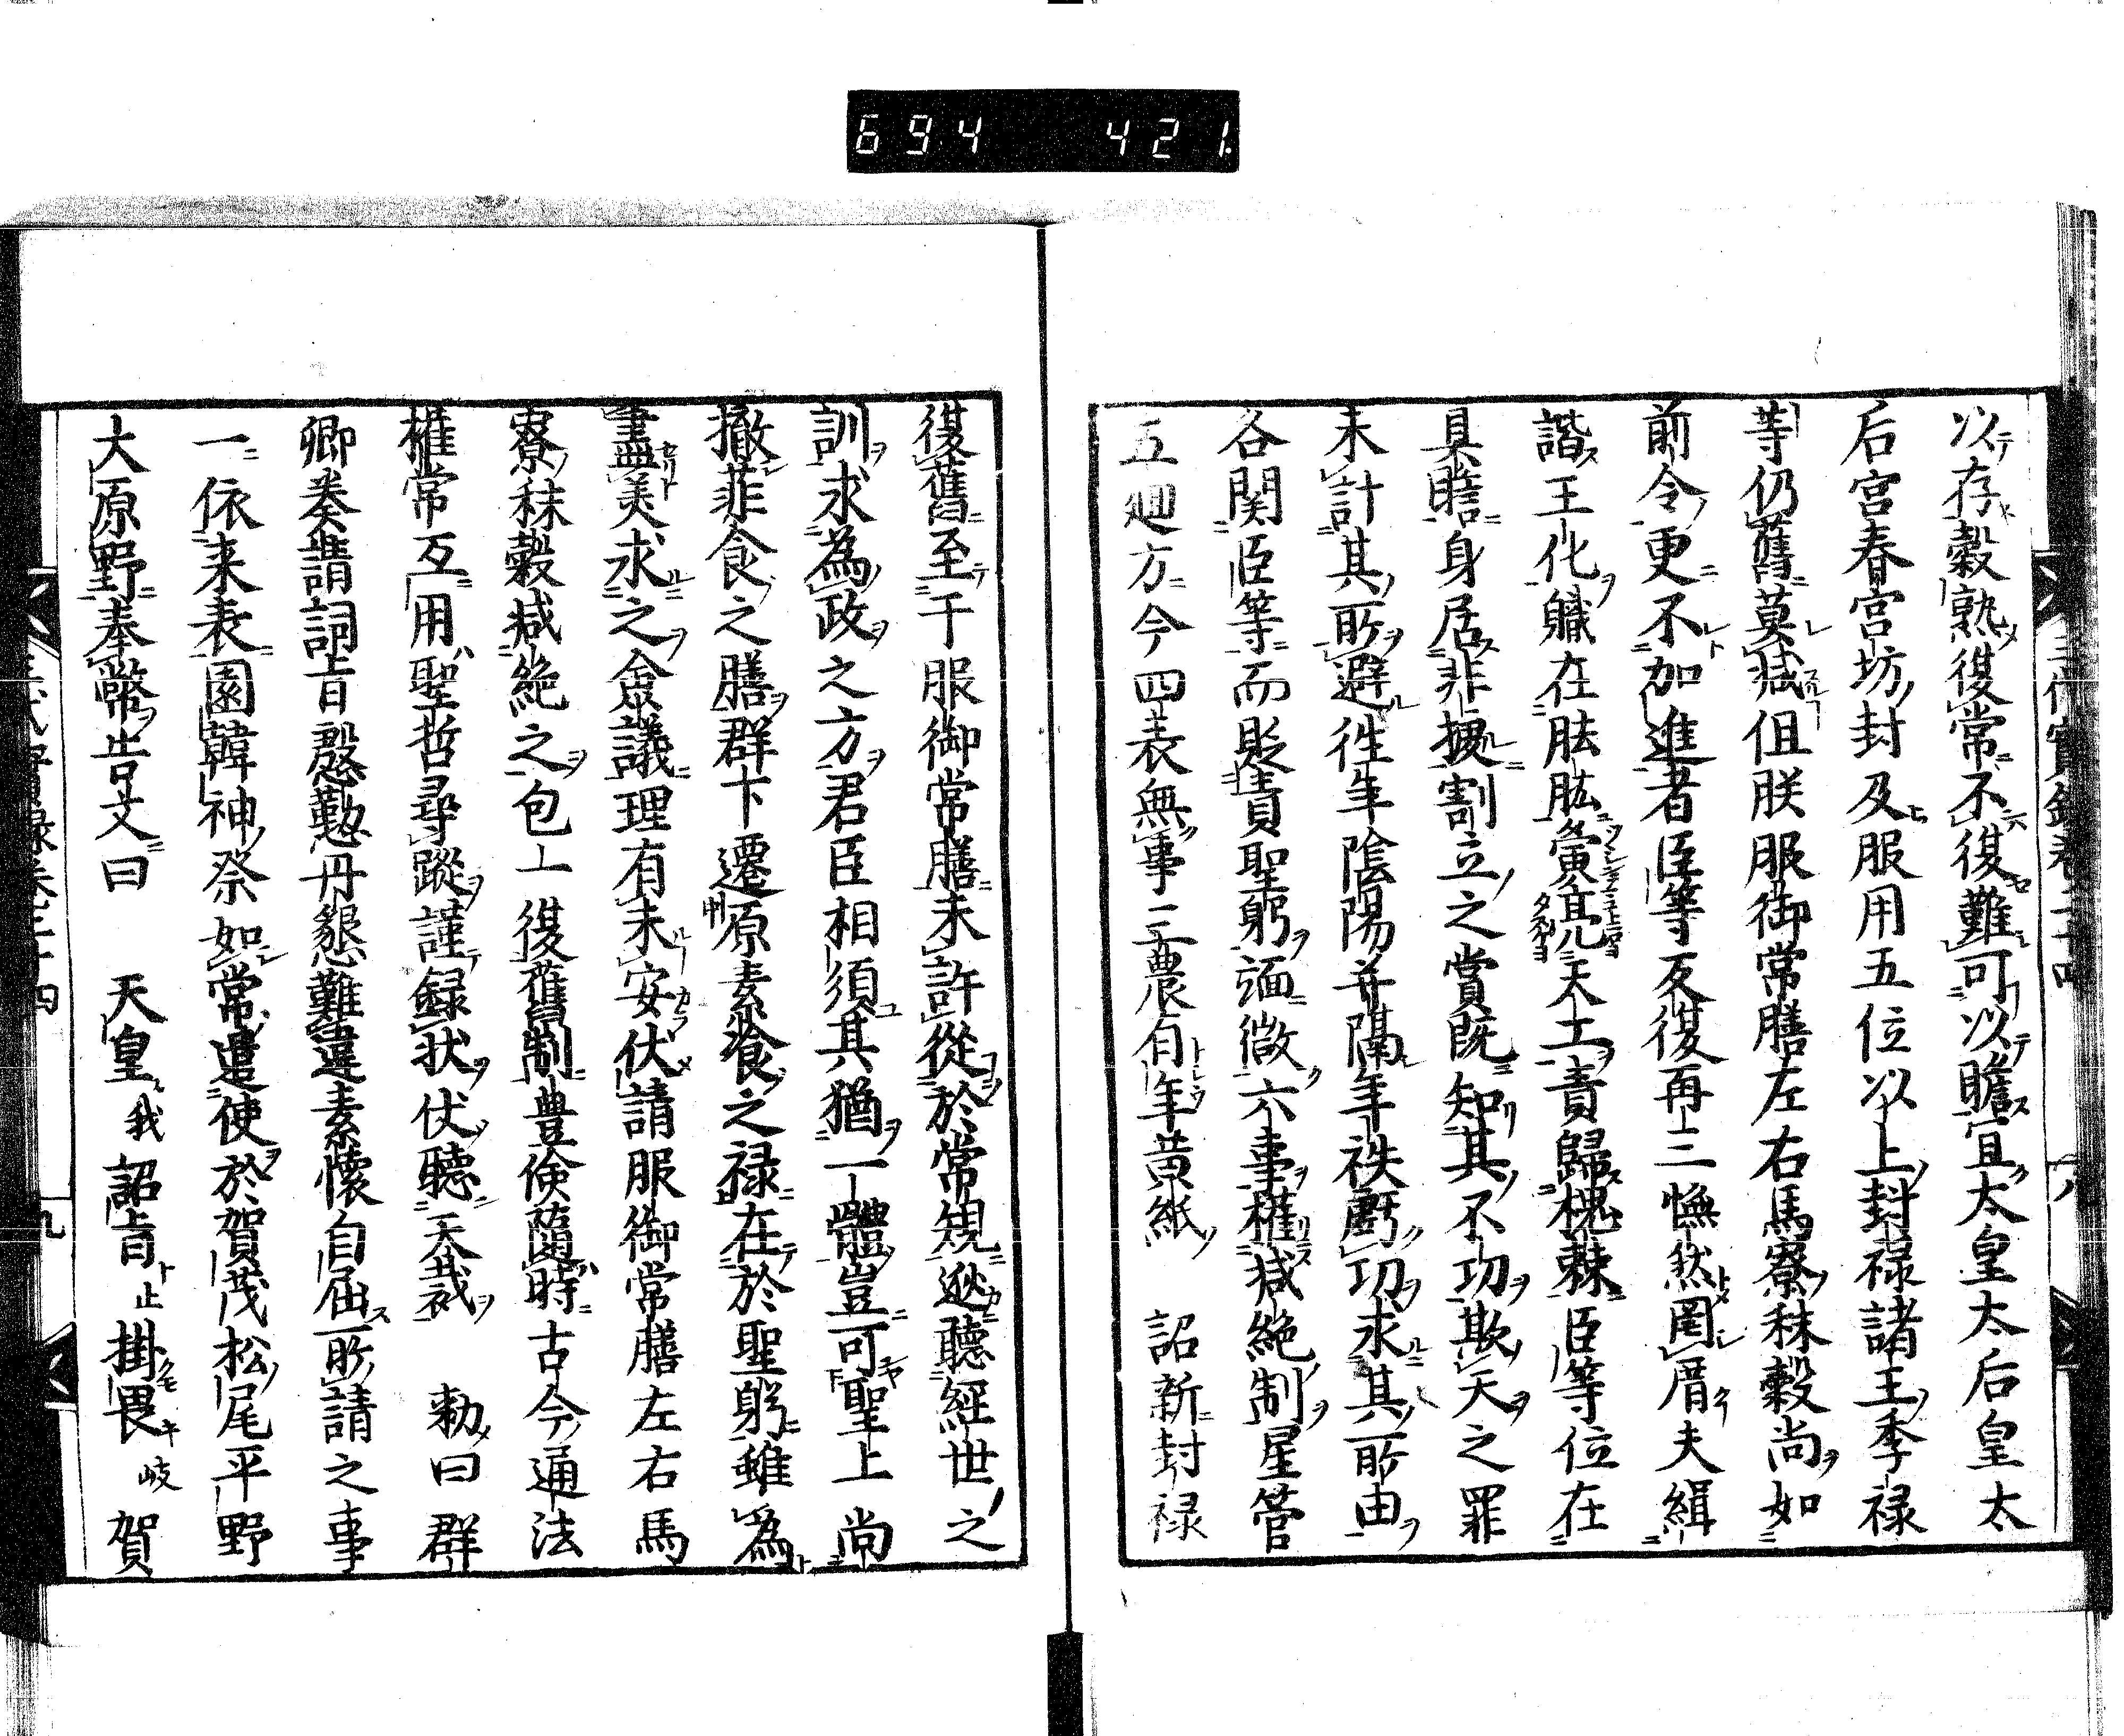 694 421.
以存穀熟復常不復難可以贍宜太皇太后皇太
后宮春宮坊封及服用五位以上封禄諸王季禄
等仍舊莫減但朕服御常膳左右馬寮秣穀尚如
前令更不加進者臣等反復再三憮然罔厝夫緝
諧王化職在胘肱寅亮天工責歸槐棘臣等位在
具瞻身居非據割立之賞既知其不功欺天之罪
未計其所避徃年陰陽并隔年袟虧功求其所由
各関臣等而貶責聖躬緬徴六事權減絶制星管
五廻方今四表無事三農有年黄紙 詔新封禄
復舊至于服御常膳未許從於常規逖聽經世之
訓求為政之方君臣相須其猶一體豈可聖上尚
撤菲食之膳群下遷原素飡之禄在於聖躬雖為
盡美求之僉議理有未安伏請服御常膳左右馬
寮秣穀減絶之包一復舊制豊儉随時古今通法
權常互用聖哲尋蹤謹録状伏聽天裁 勅曰群
卿奏請詞旨慇懃丹懇難違素懐自届所請之事
一依来表園韓神祭如常遣使於賀茂松尾平野
大原野奉幣告文曰 天皇我詔旨止掛畏岐賀
三代實録卷二十四 八
三代實録卷二十四 九